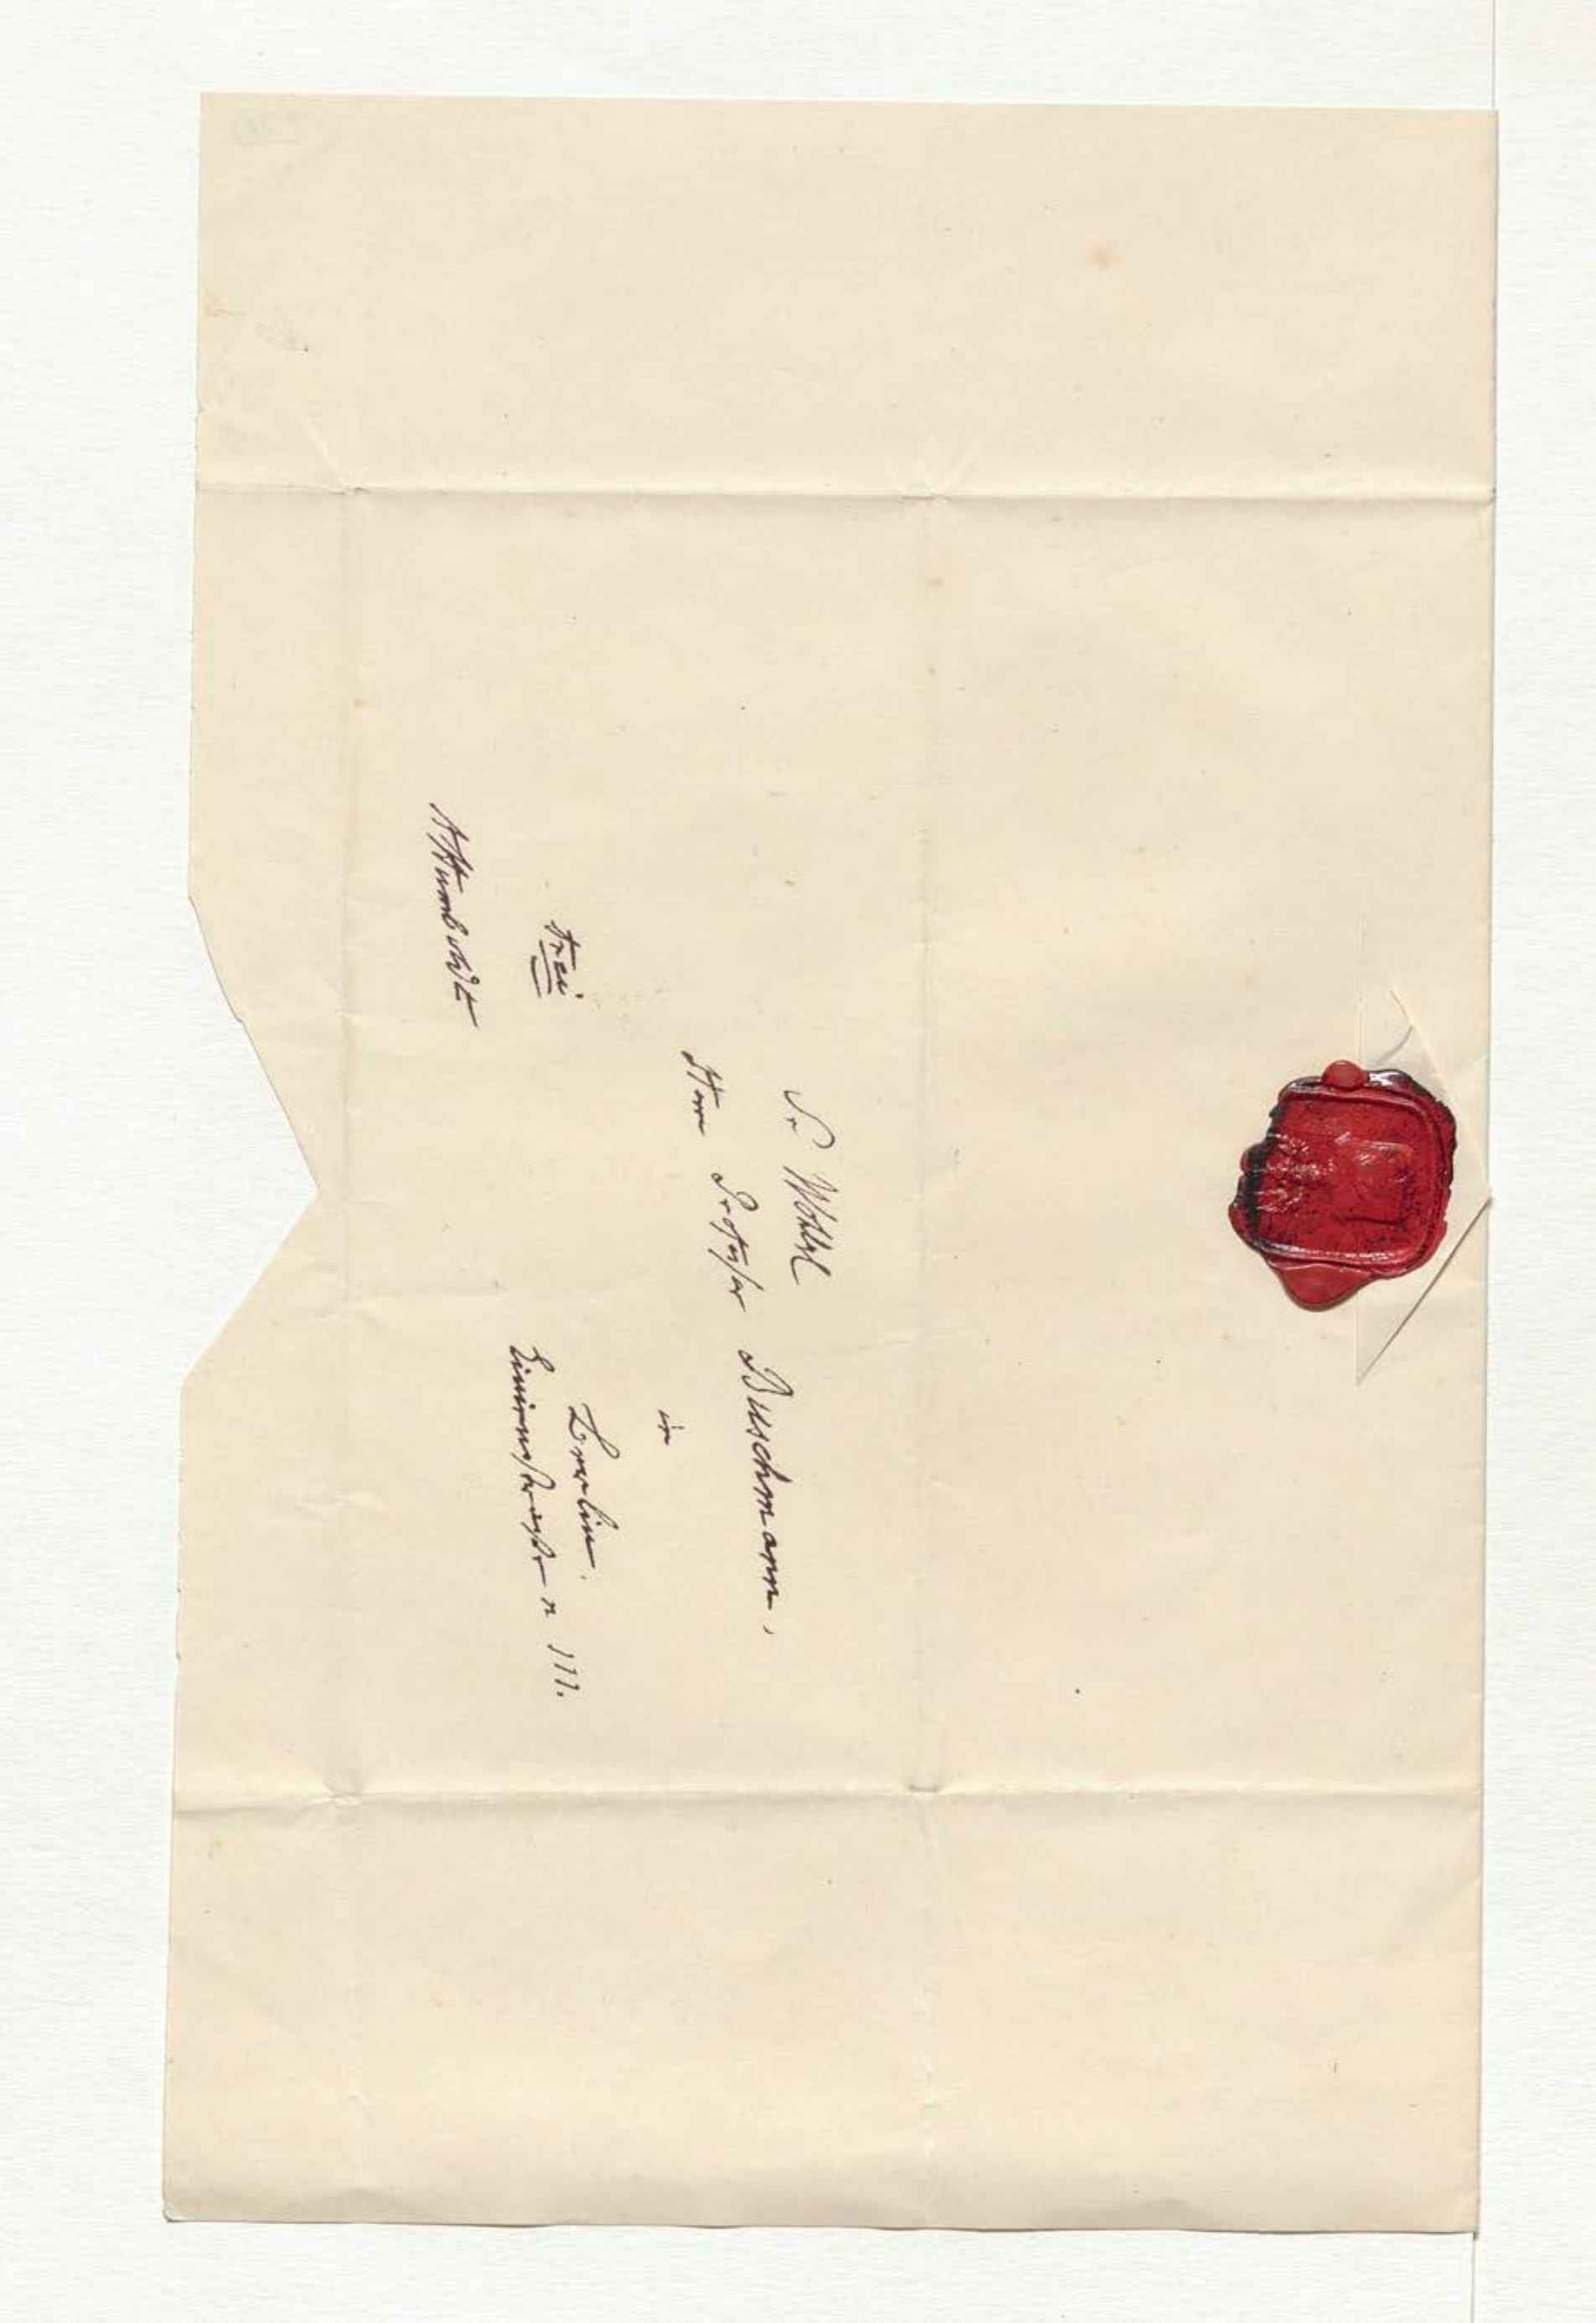 Sr Wohlgl
Herrn Professor Buschmann,
in
Berlin.
frei
Linienstraße n 111.
AHumboldt